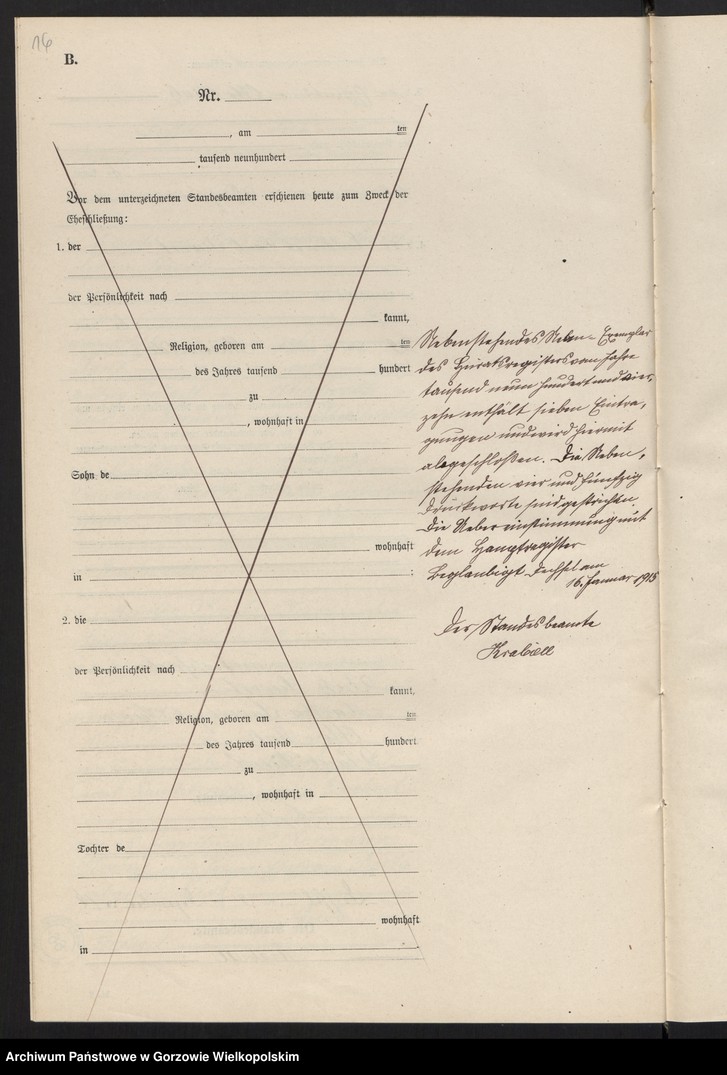 16
B.
Nr.
, am ten
tausend neunhundert
Vor dem unterzeichneten Standesbeamten erschienen heute zum Zweck der
Eheschließung:
1. der
der Persönlichkeit nach
kannt,
Religion, geboren am ten
des Jahres tausend hundert
zu
, wohnhaft in
Sohn de
wohnhaft
in :
2. die
der Persönlichkeit nach
kannt,
Religion, geboren am ten
des Jahres tausend hundert
zu
, wohnhaft in
Tochter de
wohnhaft
in
Nebenstehendes Neben-Exemplar
des Heiratsregisters vom Jahre
tausend neun hundert und vier-
zehn enthält sieben Eintra-
gungen und wird hiermit
abgeschloßen. Die Neben-
stehenden vier und fünfzig
Druckworte sind gestrichen.
Die Uebereinstimmung mit
dem Hauptregister
Beglaubigt Dechsel am
16. Januar 1915
Der Standesbeamte
Archiwum Państwowe w Gorzowie Wielkopolskim